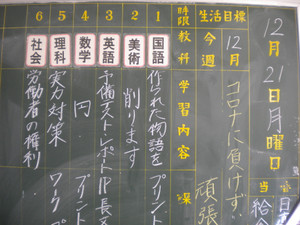 12月21日月曜日
当
生活目標
12月
コロナに負けず
今週
頑張
時限
教科
学習内容
1
国語
作られた物語を
プリント
2
美術
削ります
3
英語
予備テスト・レポート
4
数学
円
プリント
5
理科
実力対策
ワーク
6
社会
労働者の権利